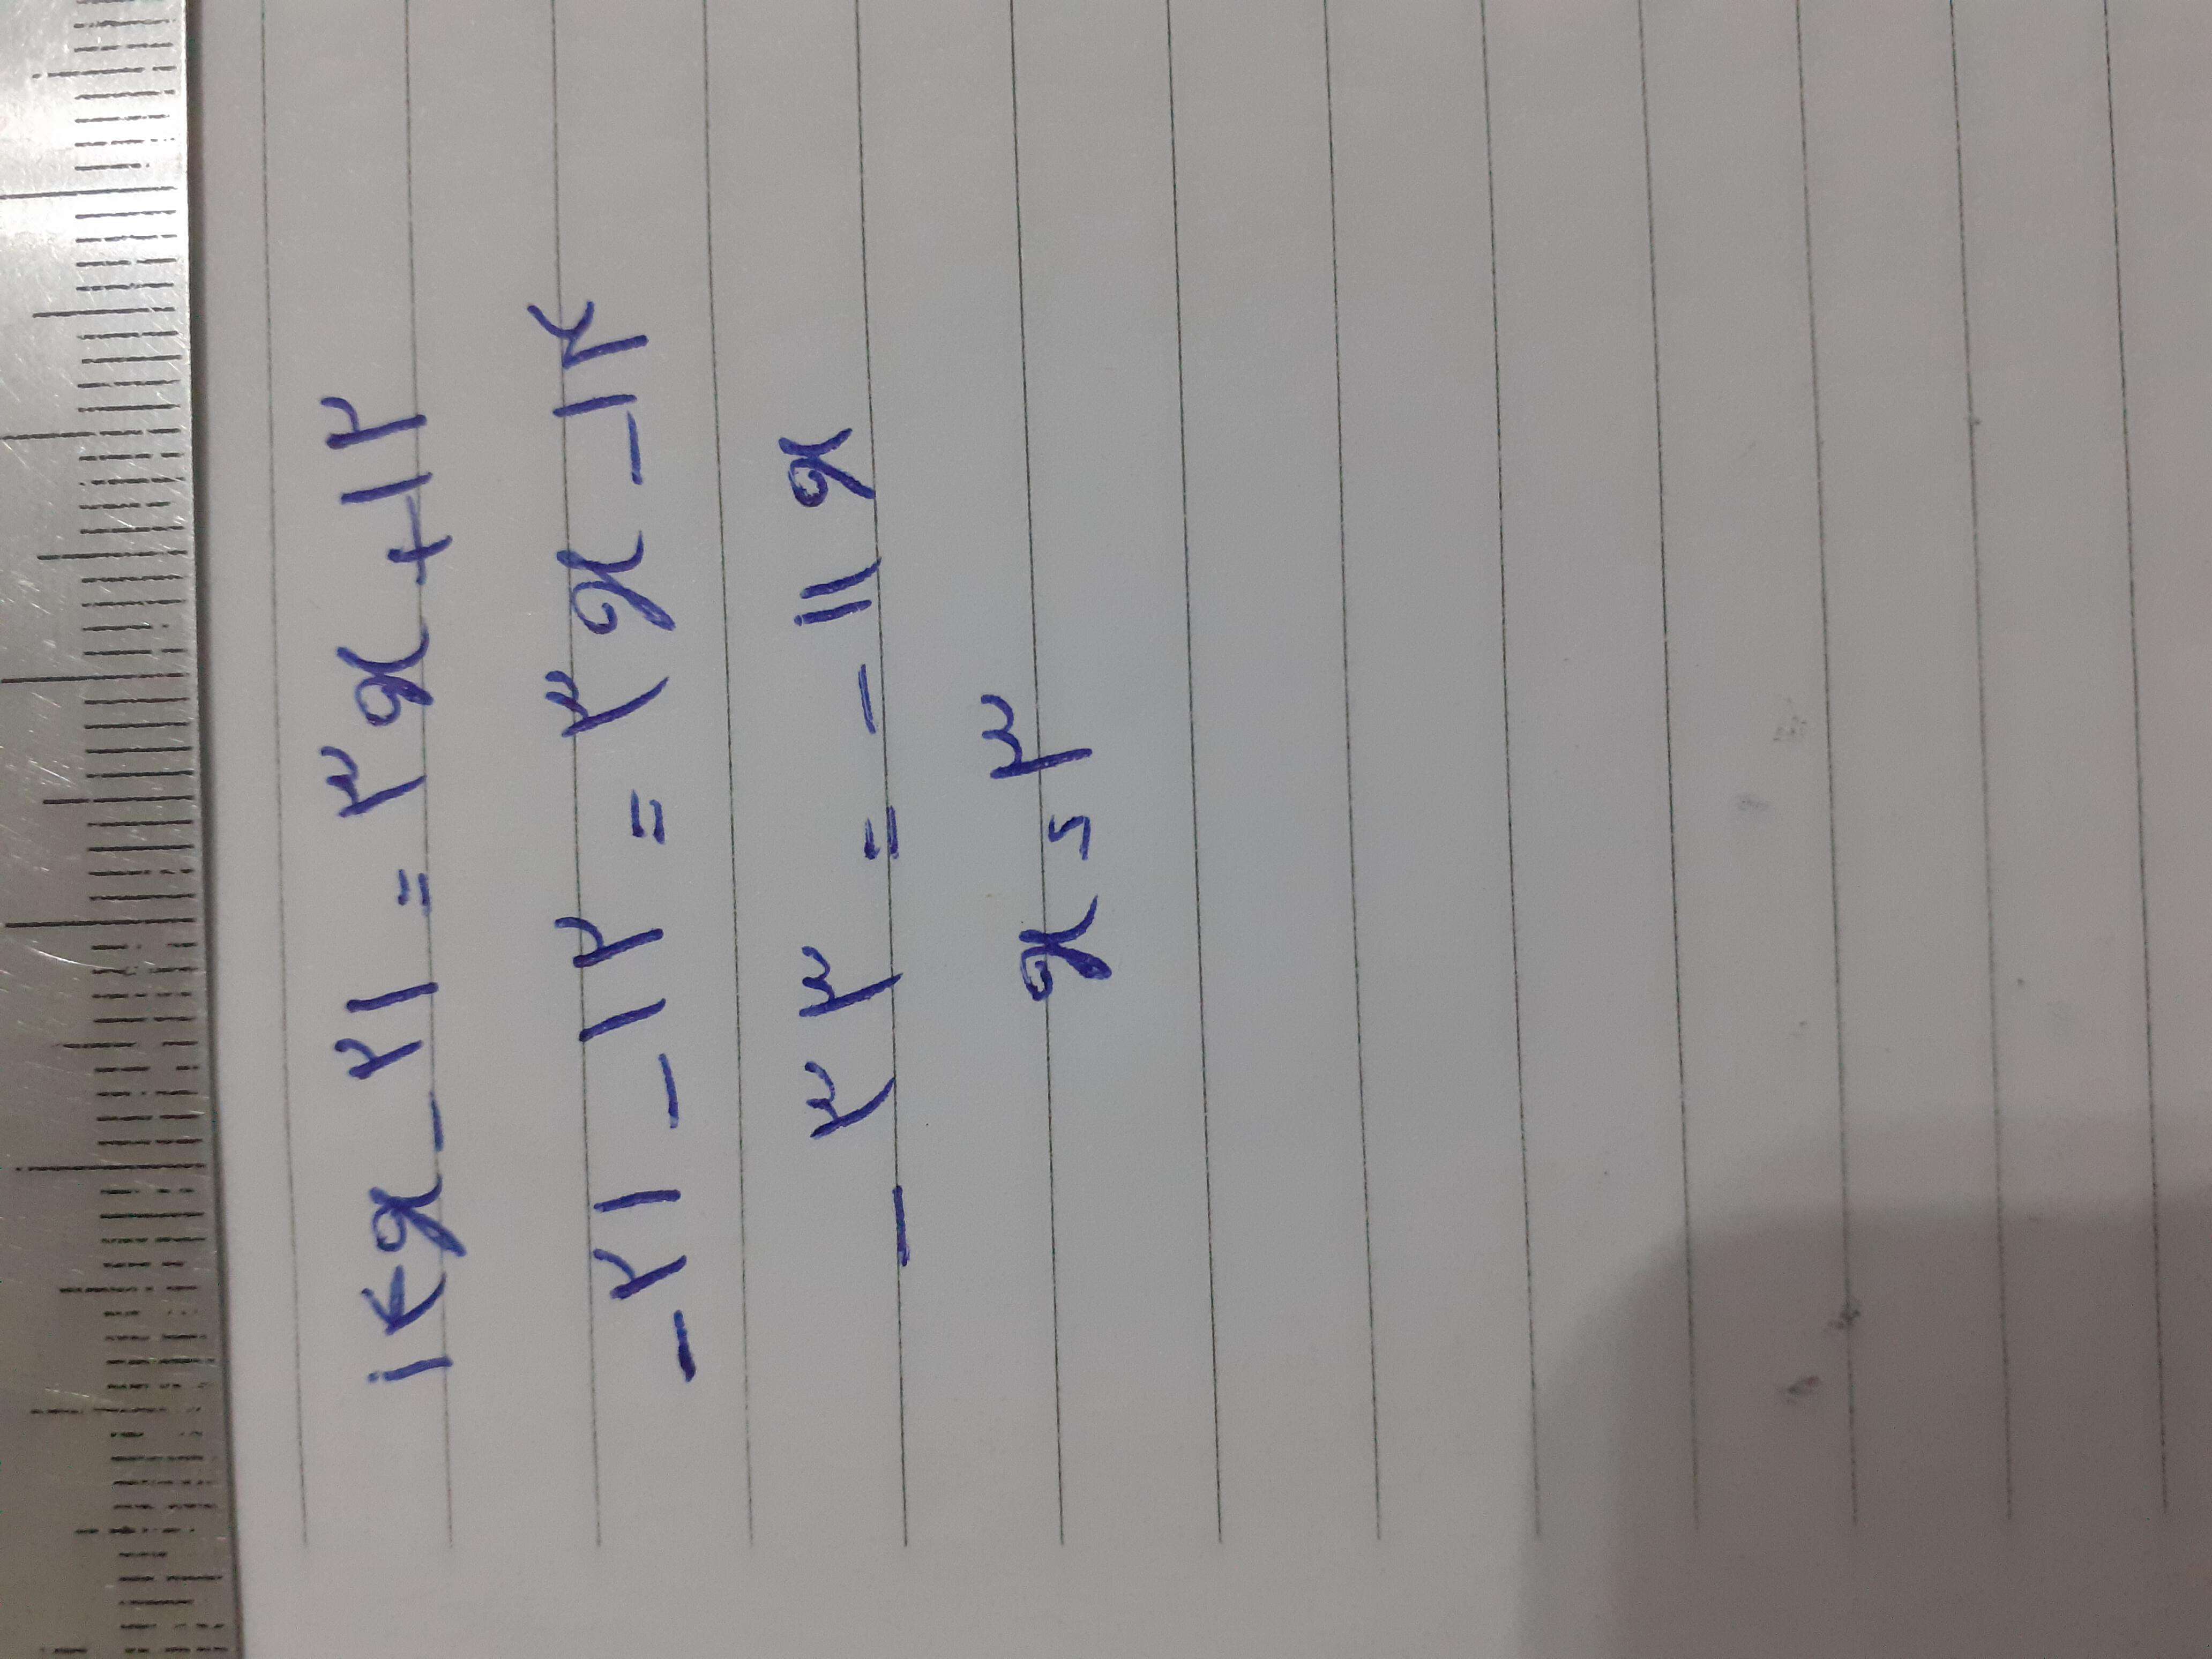 ۱۴x - ۲۱ = ۳x + ۱۲
-۲۱ - ۱۲ = ۳x - ۱۴
- ۳۳ = - ۱۱ x
x = ۳